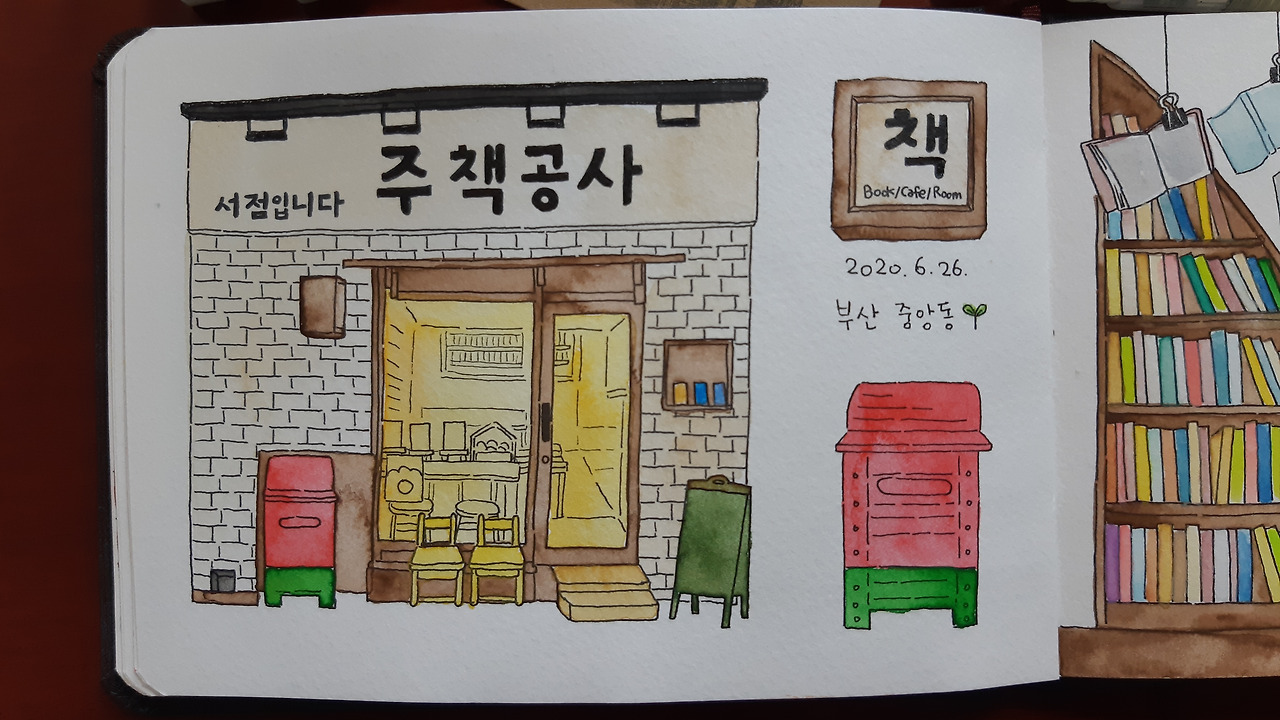 주책공사
서점입니다
책
Book/Cafe/Room
2020.6.26.
부산 중앙동